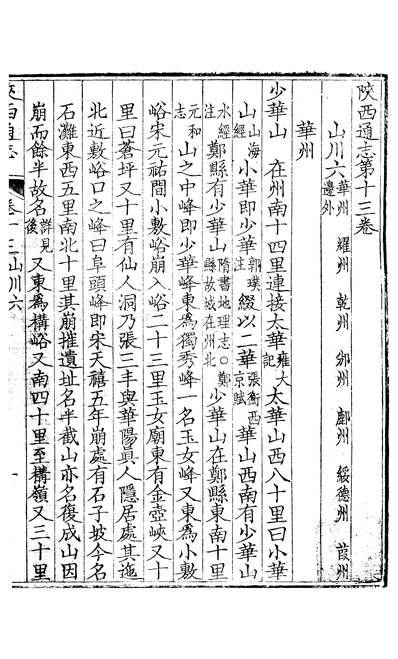 陝西通志第十三卷
山川六華州 耀州 乾州 邠州 鄜州 綏德州 葭州 邊外
華州
少華山 在州南十四里連接太華雍大記太華山西八十里曰小華
山山海經小華即少華郭璞注綴以二華張衡西京賦華山西南有少華山
水經注鄭縣有少華山隋書地理志○鄭縣故城在州北少華山在鄭縣東南十里
元和志山之中峰即少華峰東為獨秀峰一名玉女峰又東為小敷
峪宋元祐間小敷峪崩入峪二十三里玉女廟東有金壺峽又十
里曰蒼坪又十里有仙人洞乃張三丰與華陽眞人隱居處其迤
北近敷峪口之峰曰阜頭峰即宋天禧五年崩處有石子坡今名
石灘東西五里南北十里其崩摧遺址名半截山亦名復成山因
崩而餘半故名詳見後又東為構峪又南四十里至構嶺又三十里
陝西通志 卷十三山川六 一